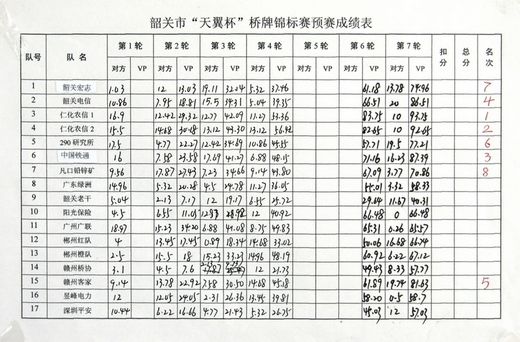 韶关市“天翼杯”桥牌锦标赛预赛成绩表
队号 队名 第1轮 第2轮 第3轮 第4轮 第5轮 第6轮 第7轮 扣分 总分 名次
对方 VP 对方 VP 对方 VP 对方 VP 对方 VP 对方 VP 对方 VP
1 韶关宏志 1.03 12 13.03 19.11 32.14 5.32 37.46 61.18 13.78 74.96 7
2 韶关电信 10.86 7.95 18.81 15.5 34.31 5.04 39.35 66.51 20 86.51 4
3 仁化农信1 16.9 12.42 29.32 12.77 42.09 11.27 53.36 83.75 10 93.75 1
4 仁化农信2 15.5 14.68 30.18 13.12 43.30 13.12 56.42 82.65 10 92.65 2
5 290研究所 17.5 4.77 22.27 12.42 34.69 10.86 45.55 57.71 19.5 77.21 6
6 中国铁通 16 7.58 23.58 17.69 41.27 6.88 48.15 71.16 16.23 87.39 3
7 凡口铅锌矿 9.56 17.87 27.43 7.23 34.66 9.14 43.80 67.09 3.77 70.86 8
8 广东绿洲 14.96 5.32 20.28 4.5 24.78 11.27 36.05 55.01 3.32 58.33
9 韶关老干 5.04 2.13 7.17 12 19.17 6.55 25.72 29.64 11.67 40.31
10 阳光保险 4.5 6.55 11.05 12 40.92 66.48 0 66.48
11 广州广联 18.97 15.23 34.20 6.88 41.08 8.75 49.83 65.31 0.26 65.57
12 郴州红队 4 13.45 17.45 0.89 18.34 14.68 33.02 50.06 16.68 66.74
13 郴州橙队 2.5 15.5 18 15.23 33.23 14.96 48.19 60.92 6.22 67.12
14 赣州桥协 3.1 4.5 7.6 12 21.73 49.43 8.33 57.77
15 赣州客家 9.14 13.78 22.92 7.58 30.50 14.68 45.18 61.89 19.74 81.63 5
16 昱峰电力 12 12.05 24.05 2.31 26.36 13.45 39.81 58.20 0.5 58.7
17 深圳平安 10.44 6.22 16.66 4.77 21.43 5.32 26.75 45.03 12 57.03